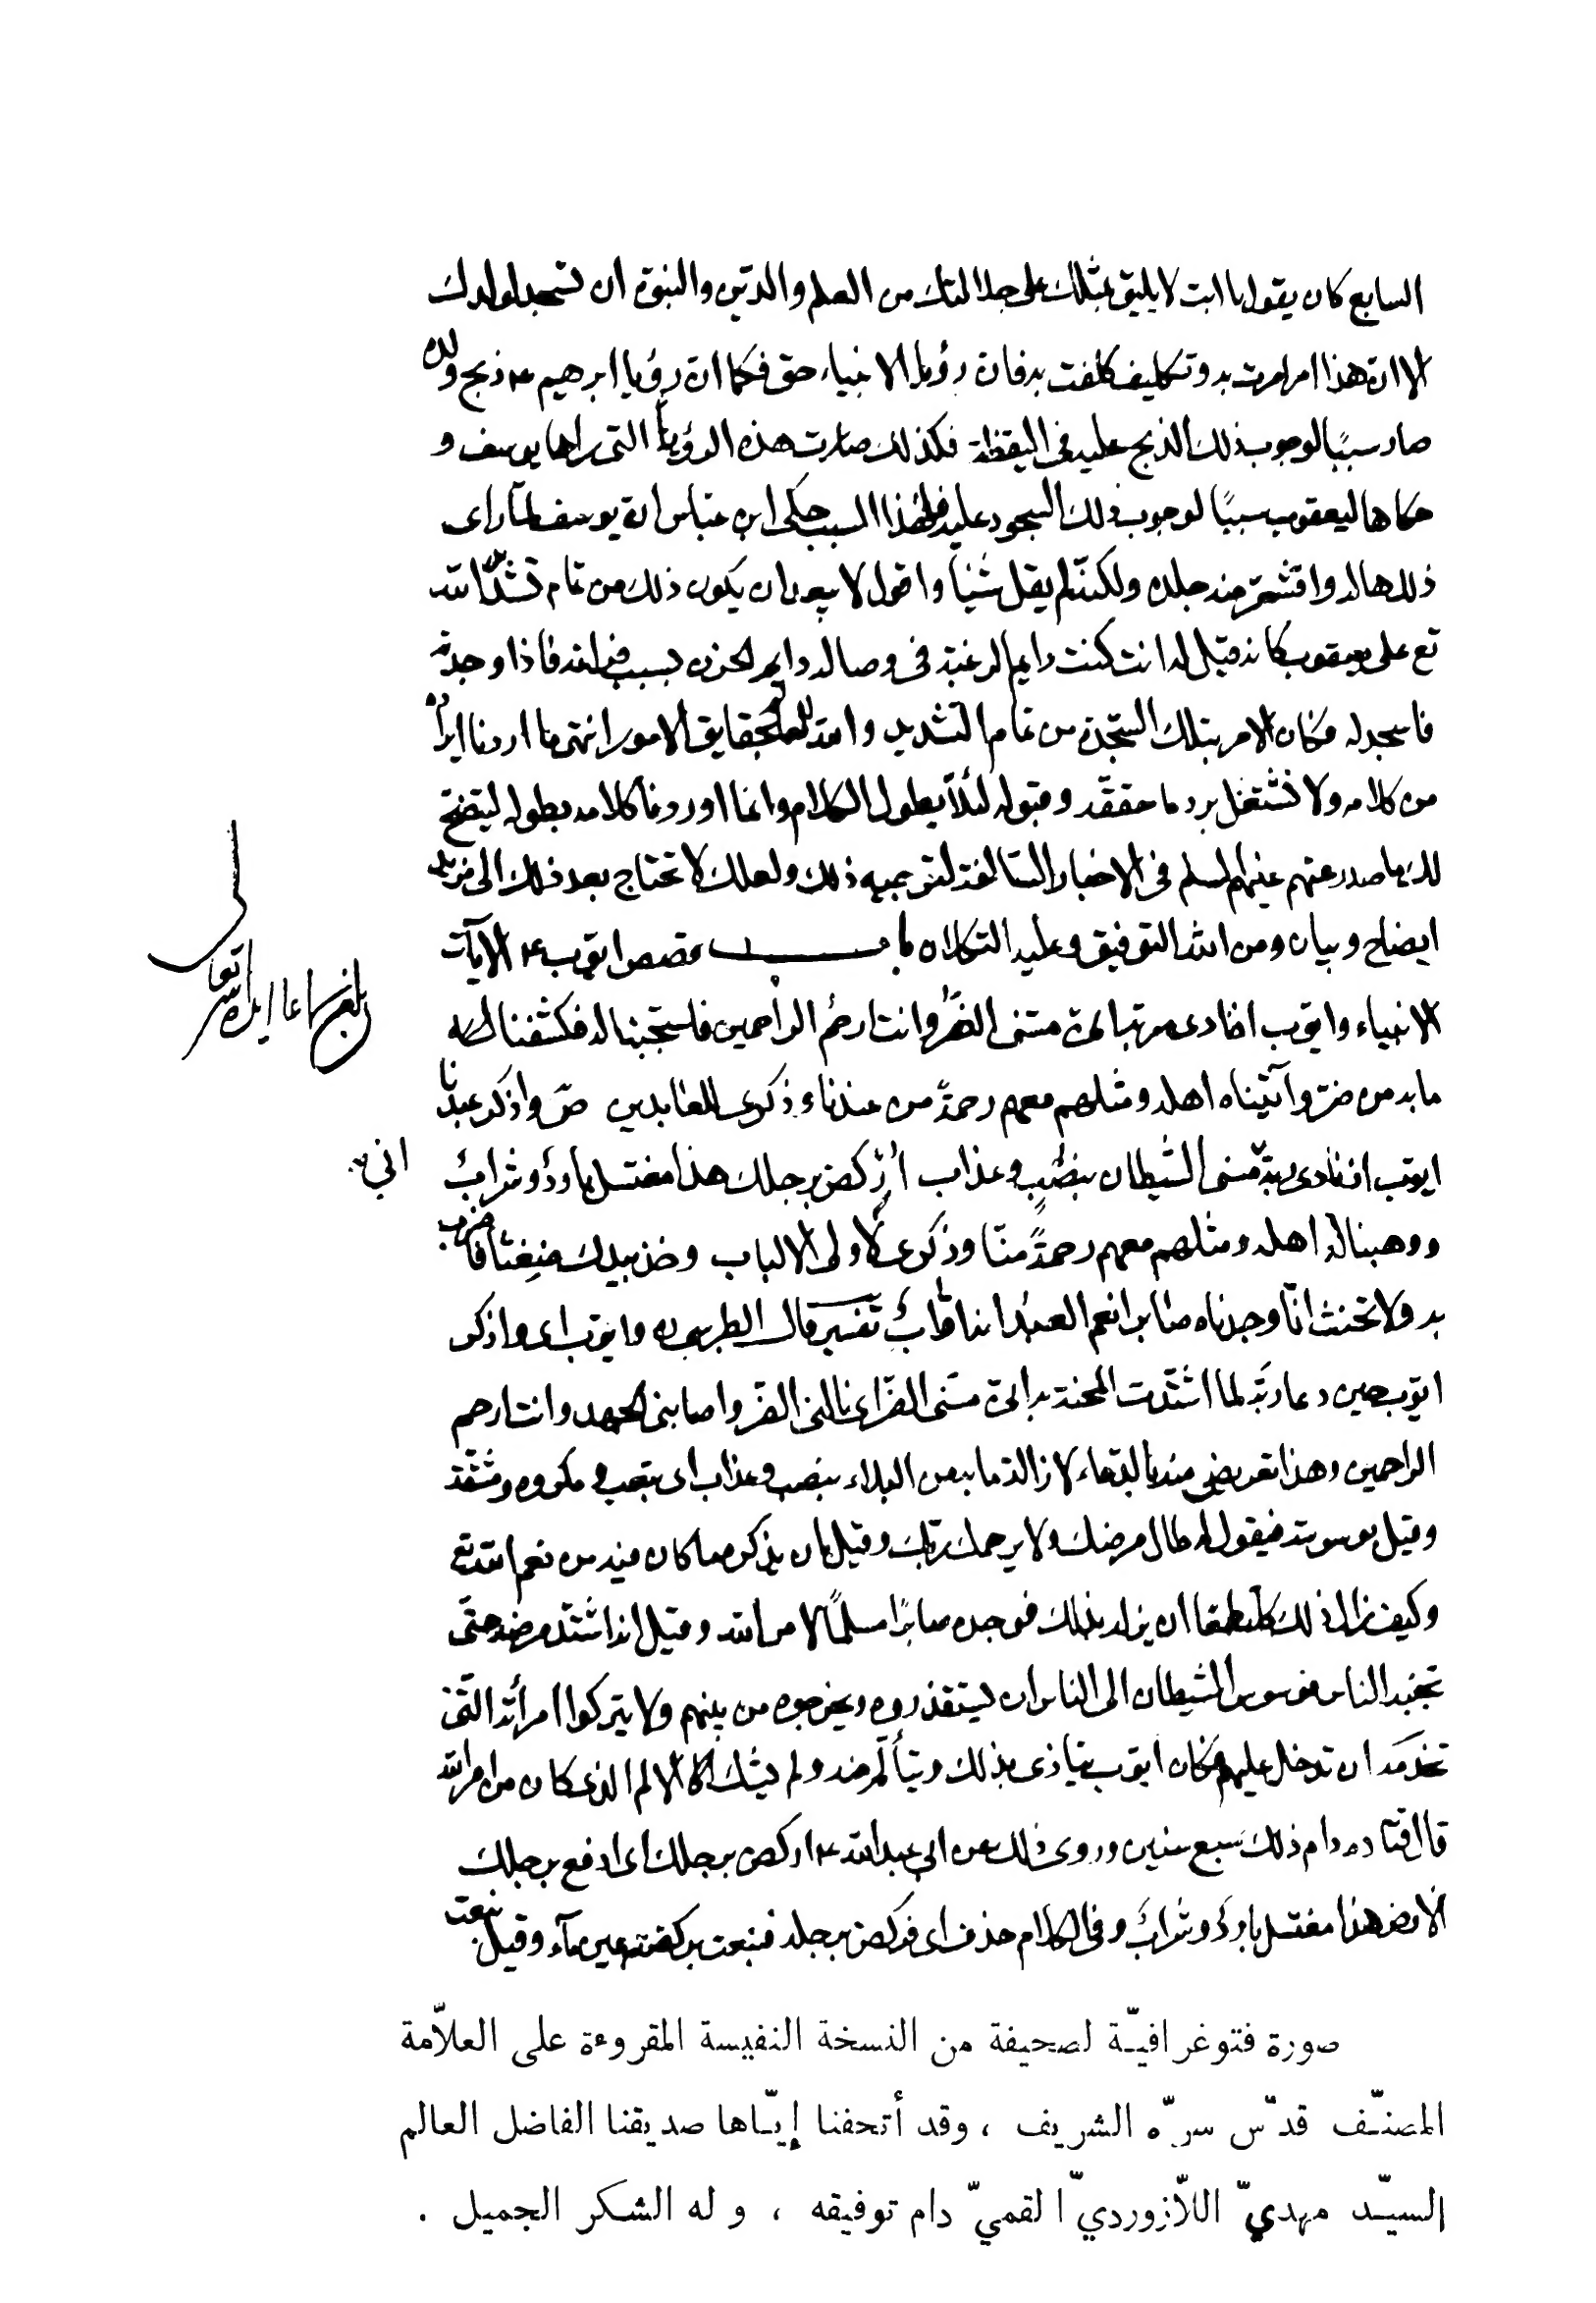 السابع كان يقول يا ابت لا يليق بمثلك على جلالتك من العلم والدين والنبوة ان تسجد لولدك
الا ان هذا امر امرت به وتكليف كلفت به فان رؤيا الانبياء حق فكما ان رؤيا ابرهيم ع ذبح ولده
صار سببًا لوجوب ذلك الذبح عليه في اليقظة فكذلك صارت هذه الرؤيا التي راها يوسف و
حكاها ليعقوب سببًا لوجوب ذلك السجود عليه فلهذا السبب حكى ابن عباس ان يوسف لما راى
ذلك هاله واقشعر منه جلده ولكنه لم يقل شيئا واقول لا يبعد ان يكون ذلك من تمام تشديد الله
تع على يعقوب كانه قيل له انت كنت دايم الرغبة في وصاله دايم الحزن بسبب فراقه فاذا وجدته
فاسجد له فكان الامر بتلك السجدة من تمام التشديد والله العالم بحقايق الامور انتهى ما اردنا ايراده
من كلامه ولا نشتغل برد ما حققه وقبوله لئلا يطول الكلام وانما اوردنا كلامه بطوله ليتضح
لك ما صدر عنهم عليهم السلم في الاخبار السالفة لتوجيه ذلك ولعلك لا تحتاج بعد ذلك الى مزيد
ايضاح وبيان ومن الله التوفيق وعليه التكلان باب قصص ايوب ع الآيات
الانبياء وايوب اذ نادى ربه انى مسنى الضر وانت ارحم الراحمين فاستجبنا له فكشفنا
ما به من ضر وآتيناه اهله ومثلهم معهم رحمةً من عندنا وذكرى للعابدين ص واذكر عبدنا
ايوب اذ نادى ربه مسنى الشيطان بنصب وعذاب اركض برجلك هذا مغتسل بارد وشراب
اني
ووهبنا له اهله ومثلهم معهم رحمةً منا وذكرى لاولى الالباب وخذ بيدك ضغثا فاضرب
به ولا تحنث انا وجدناه صابرا نعم العبد انه اواب تفسير قال الطبرسي ره وايوب اى واذكر
ايوب حين دعا ربه لما اشتدت المحنة به انى مسنى الضر اى نالنى الضر واصابنى الجهد وانت ارحم
الراحمين وهذا تعريض منه بالدعاء لازالة ما به من البلاء بنصب وعذاب اى بتعب ومكروه ومشقة
وقيل بوسوسته فيقول له طال مرضك ولا يرحمك ربك وقيل بان يذكره ما كان فيه من نعم الله تع
وكيف زال ذلك كله طمعا ان يزله بذلك فوجده صابرًا مسلمًا لامر الله وقيل انه اشتد مرضه حتى
تجنبه الناس فوسوس الشيطان الى الناس ان يستقذروه ويخرجوه من بينهم ولا يتركوا امرأته التى
تخدمه ان تدخل عليهم فكان ايوب يتاذى بذلك ويتألم منه ولم يشك الالم الذى كان من امر الله
قال قتادة دام ذلك سبع سنين وروى ذلك عن ابي عبدالله ع اركض برجلك اى ادفع برجلك
الارض هذا مغتسل بارد وشراب وفى الكلام حذف اى فركض برجله فنبعت بركضته عين ماء وقيل نبعت
صورة فتوغرافيّة لصحيفة من النسخة النفيسة المقروءة على العلاّمة
المصنّف قدّس سرّه الشريف ، وقد أتحفنا إيّاها صديقنا الفاضل العالم
السيّد مهديّ اللاّزورديّ القميّ دام توفيقه ، وله الشكر الجميل .